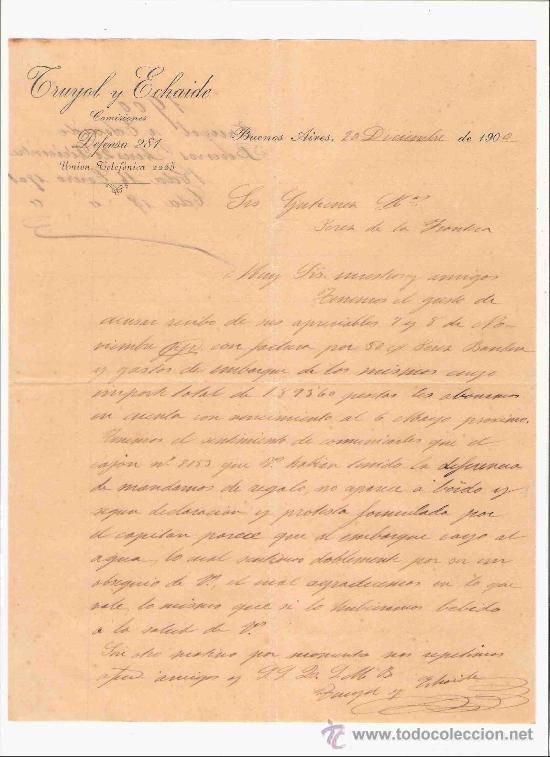 Truyol y Echaide
Comisiones
Defensa 281
Union Telefónica 2223
Buenos Aires, 20 Diciembre de 1900
Srs Gutierrez Hos
Jerez de la Frontera
Muy Srs. nuestros y amigos
Tenemos el gusto de
acusar recibo de sus apreciables 7 y 8 de No-
viembre ppdo con factura por 50 c/ Jerez Bandera
y gastos de embarque de los mismos cuyo
importe total de 1893'60 pesetas les abonamos
en cuenta con vencimiento al 6 Mayo proximo.
Tenemos el sentimiento de comunicarles que el
cajón nº 8153 que Vs. habian tenido la deferencia
de mandarnos de regalo, no aparece a bordo y
segun declaración y protesta formulada por
el capitan parece que al embarque cayó al
agua, lo cual sentimos doblemente por ser un
obsequio de Vs, el cual agradecemos en lo que
vale, lo mismo que si lo hubieramos bebido
a la salud de Vs.
Sin otro motivo por momento nos repetimos
amigos y S S Q. S M B
Truyol y Echaide
todocoleccion.net